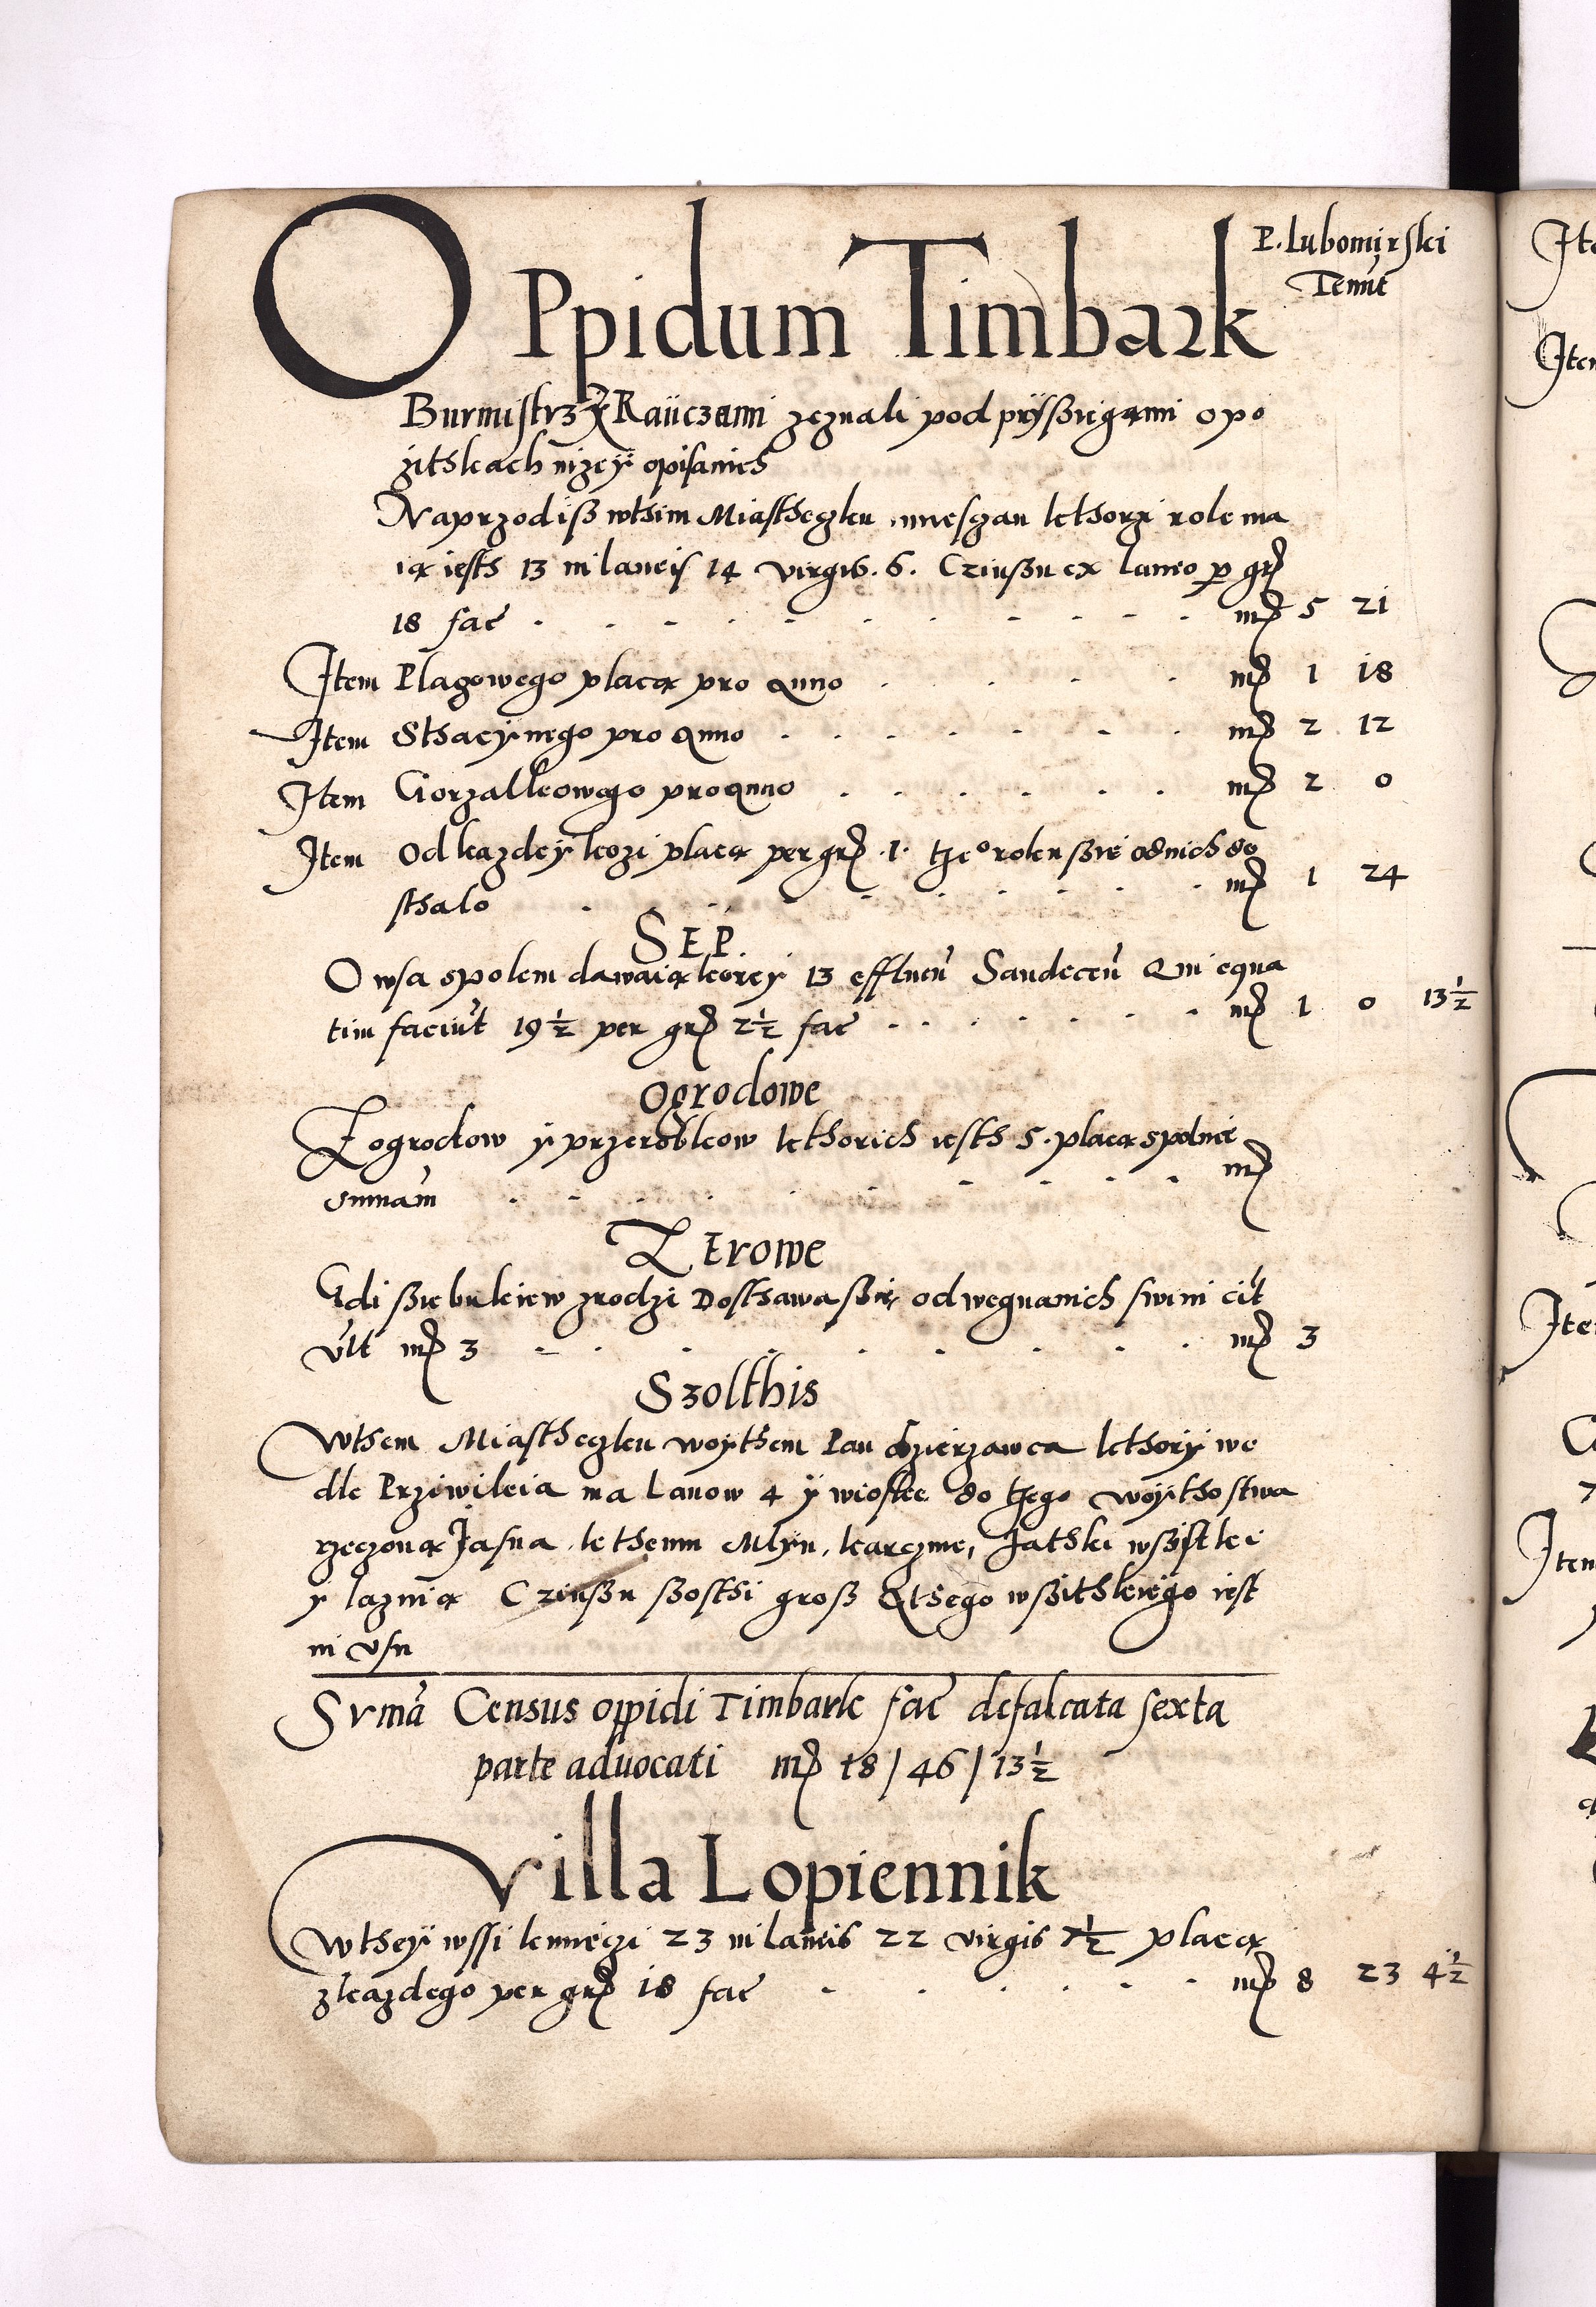 P. Lubomirski
Tenut
Oppidum Timbark
Burmistrz y Raiiczami zeznali pod prÿssiegami o po
zithkach nizeÿ opisanich
Naprzod iss wthim Miasthczku miesczan kthorzi role ma
ią iesth 13 in laneis 14 virgis . 6 . Czinssu ex laneo per gr
18 fac . . . . . . . . . . mr 5 21
Item Plagowego placą pro anno . . . . mr 1 18
Item Sthacÿinego pro anno . . . . . . . mr 2 12
Item Gorzalkowego pro anno . . . . . . mr 2 0
Item Od kazdeÿ kozi placą per gr . 1 . the° roku ssie od nich do
sthalo . . . . . . . . mr 1 24
SEP.
Owsa spolem dawaią koreÿ 13 effluen Sandecen Qui equa
tim faciut 19½ per gr 2½ fac . . . . . . . mr 1 0 13½
Ogrodowe
Z ogrodow ÿ przerobkow kthorich iesth 5 . placą spolnie
sumam . . . . . . . . . mr
Zerowe
Gdi ssie bukiew zrodzi Dosthawa ssie od wegnanich swini cit
vlt mr 3 . . . . . . . . . mr 3
Szolthis
Wthem Miasthczku woÿthem Pan dzierzawca kthorÿ we
dle Prziwileia ma Lanow 4 ÿ wioske do thego woÿthostwa
rzeczoną Jasna . kthemu Mlÿn, karczme, Jathki wssistki
y laznią Czinssu ssosthi gross A thego wssithkiego iest
in vsu
Suma Census oppidi Timbark fac defalcata sexta
parte advocati mr 18 / 46 / 13½
Villa Lopiennik
Wtheÿ wssi kmieczi 23 in laneis 22 virgis 7½ placą
z kazdego per gr 18 fac . . . . . . mr 8 23 4½